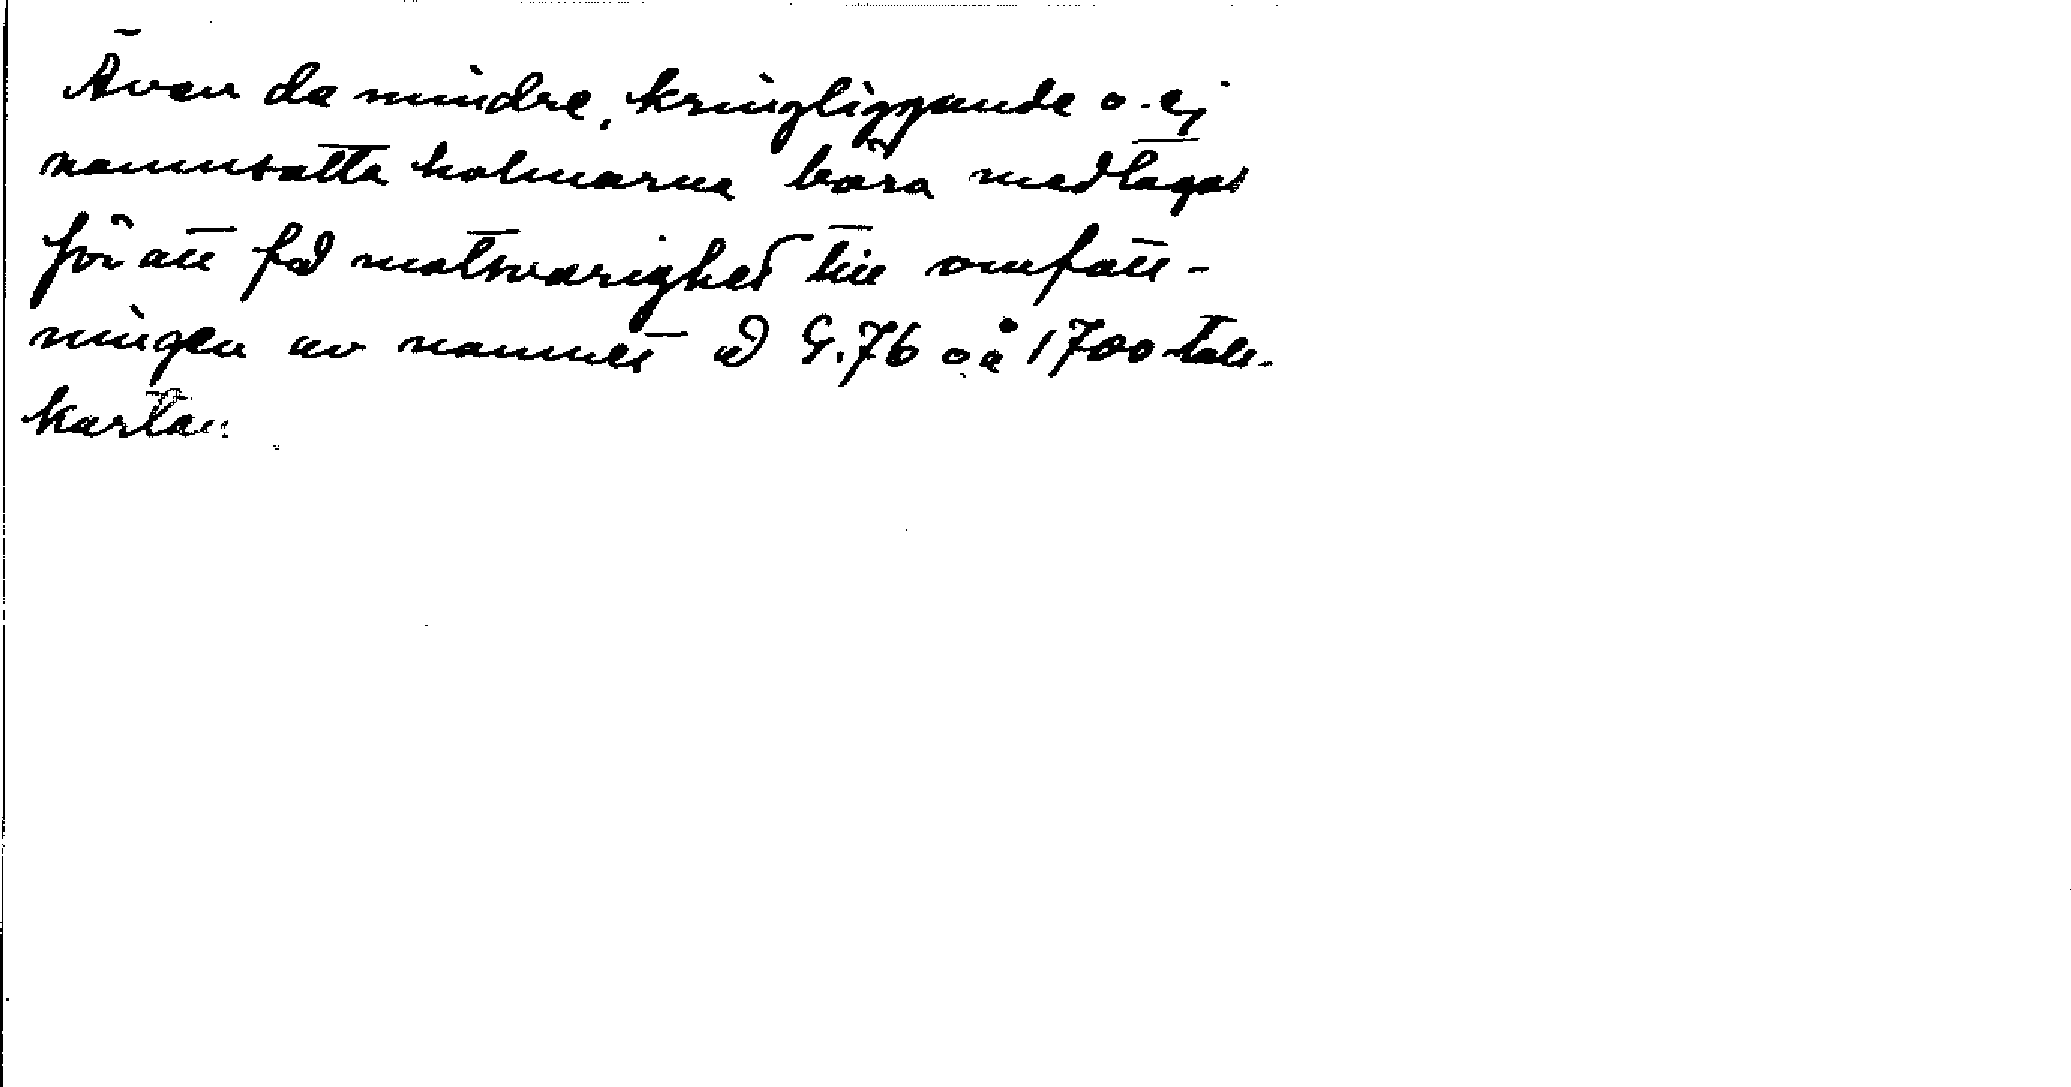 Även de mindre, kringliggande o. ej
namnsatta holmarna böra medtagas
för att få motsvarighet till omfatt-
ningen av namnet å G.76 o å 1700-tals-
kartan